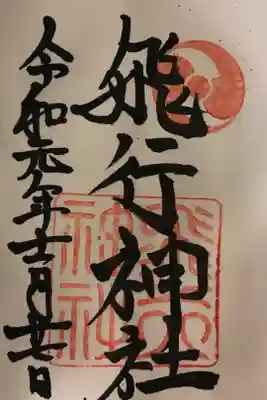 飛行神社
令和元年十二月廿七日
飛行
神社